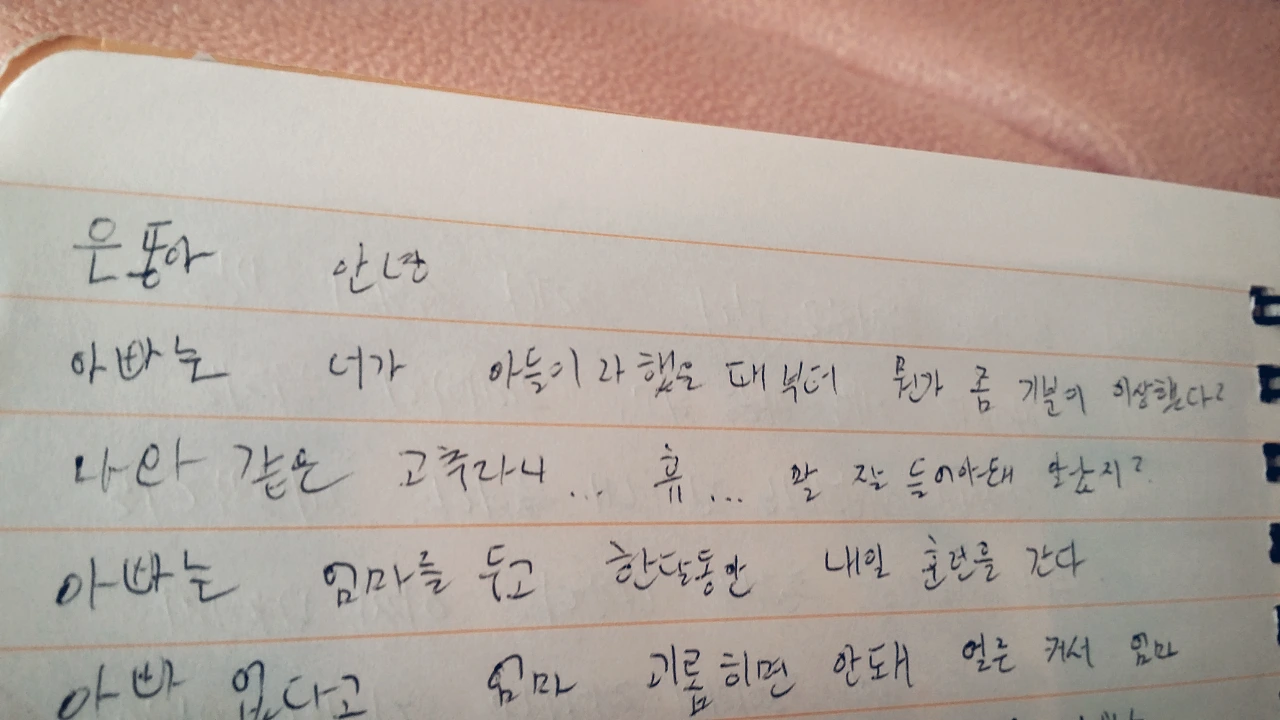 은똥아 안녕
아빠는 너가 아들이라했을 때부터 뭔가 좀 기분이 이상했다?
나와 같은 고추라니... 휴... 말 잘 들어야돼 알았지?
아빠는 엄마를 두고 한달동안 내일 훈련을 간다
아빠 없다고 엄마 괴롭히면 안돼 얼른 커서 엄마